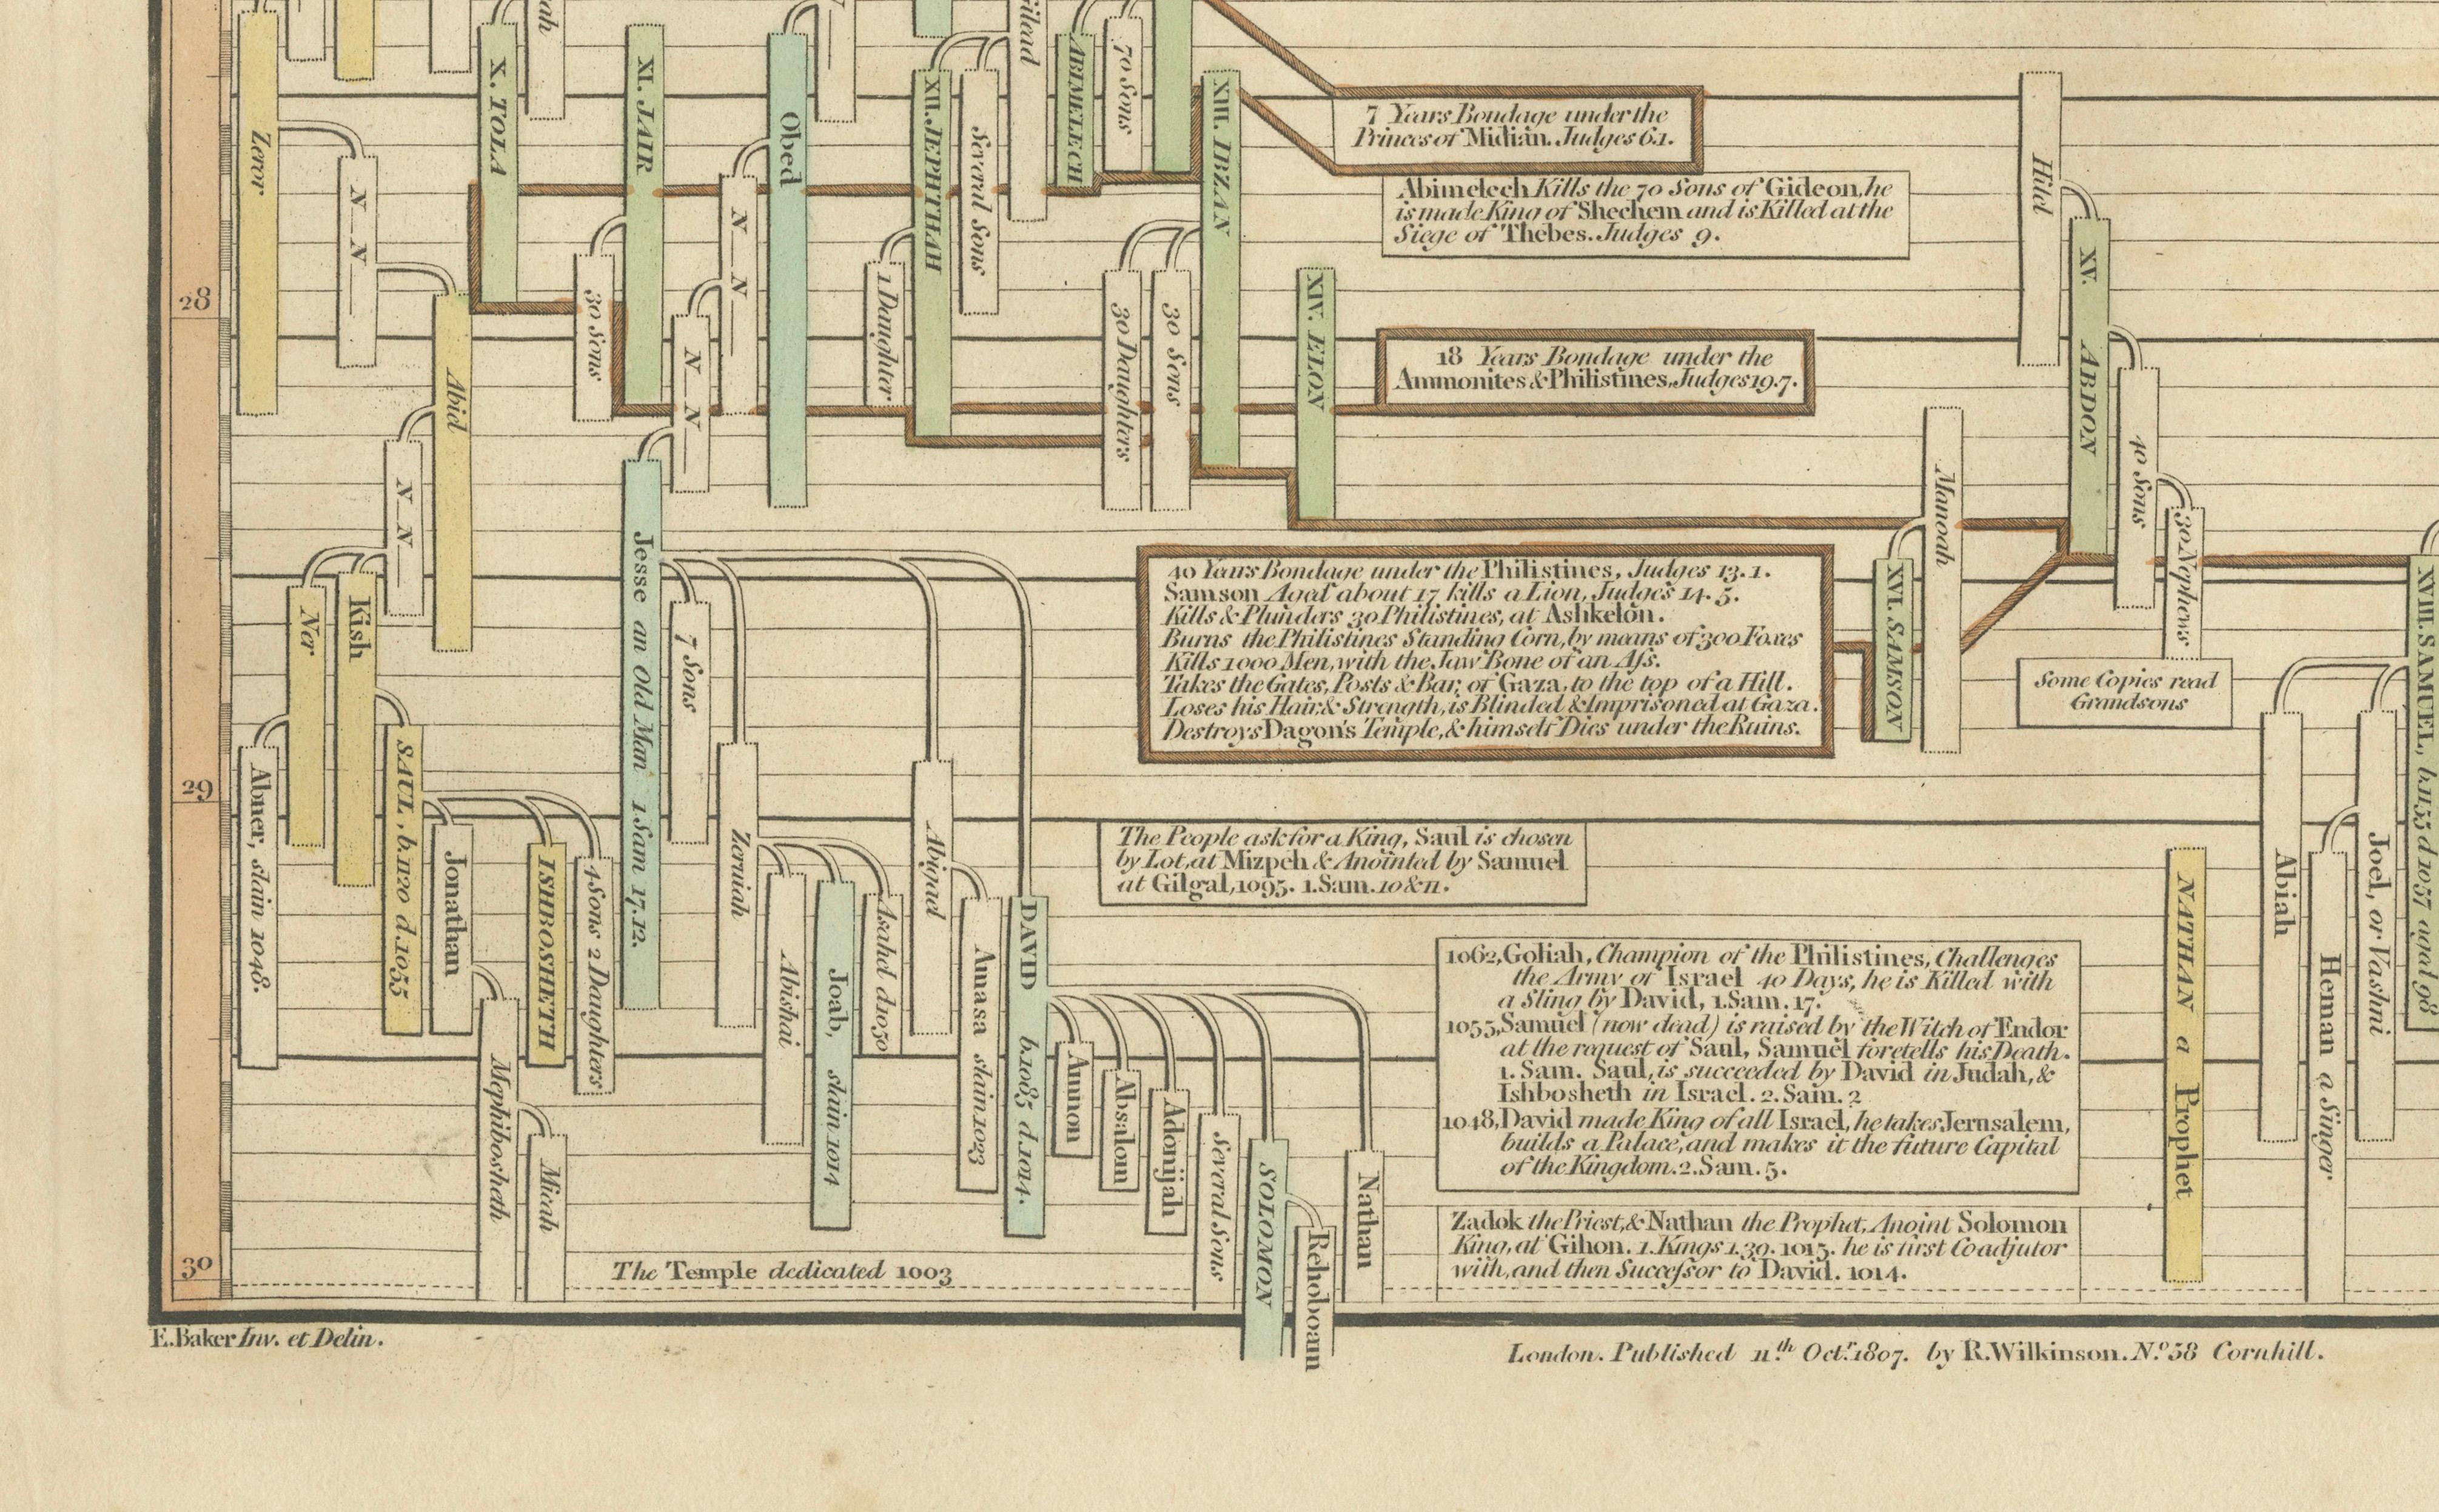 ah
ilead
X. TOLA
XI. JAIR
Obed
XII. JEPHTHAH
Several Sons
ABIMELECH
70 Sons
XIII. IBZAN
7 Years Bondage under the
Princes of Midian. Judges 6.1.
Zeror
N__N__
N__N__
Abimelech Kills the 70 Sons of Gideon, he
is made King of Shechem and is Killed at the
Siege of Thebes. Judges 9.
Hilel
XV. ABDON
28
30 Sons
1 Daughter
30 Daughters
30 Sons
XIV. ELON
N__N__
18 Years Bondage under the
Ammonites & Philistines, Judges 19.7.
Abiel
N__N__
Manoah
40 Sons
30 Nephews
Some Copies read
Grandsons
Ner
Kish
Jesse an Old Man 1.Sam 17.12.
7 Sons
40 Years Bondage under the Philistines, Judges 13.1.
Samson Aged about 17 kills a Lion, Judges 14.5.
Kills & Plunders 30 Philistines, at Ashkelon.
Burns the Philistines Standing Corn, by means of 300 Foxes
Kills 1000 Men, with the Jaw Bone of an Aſs.
Takes the Gates, Posts & Bar, of Gaza, to the top of a Hill.
Loses his Hair & Strength, is Blinded & Imprisoned at Gaza.
Destroys Dagon's Temple, & himself Dies under the Ruins.
XVI. SAMSON
XVIII. SAMUEL, b.1155 d 1057 aged 98
29
Abner, slain 1048.
SAUL, b.1120 d.1055
Jonathan
ISHBOSHETH
4 Sons 2 Daughters
Zeruiah
Abishai
Joab, slain 1014
Asahel d 1050
Abigael
Amasa slain 1023
DAVID b.1085 d.1014.
The People ask for a King, Saul is chosen
by Lot, at Mizpeh & Anointed by Samuel
at Gilgal, 1095. 1.Sam. 10 & 11.
NATHAN a Prophet
Abiah
Heman a Singer
Joel, or Vashni
1062, Goliah, Champion of the Philistines, Challenges
the Army of Israel 40 Days, he is Killed with
a Sling by David, 1.Sam. 17.
1055, Samuel (now dead) is raised by the Witch of Endor
at the request of Saul, Samuel foretells his Death.
1. Sam. Saul, is succeeded by David in Judah, &
Ishbosheth in Israel. 2. Sam. 2
1048, David made King of all Israel, he takes Jerusalem,
builds a Palace, and makes it the future Capital
of the Kingdom. 2. Sam. 5.
Mephibosheth
Micah
Amnon
Absalom
Adonijah
Several Sons
SOLOMON
Rehoboam
Nathan
Zadok the Priest, & Nathan the Prophet, Anoint Solomon
King, at Gihon. 1. Kings 1.39. 1015. he is first Coadjutor
with, and then Succeſsor to David. 1014.
30
The Temple dedicated 1003
E. Baker Inv. et Delin.
London. Published 11th. Octr. 1807. by R. Wilkinson. No. 58 Cornhill.